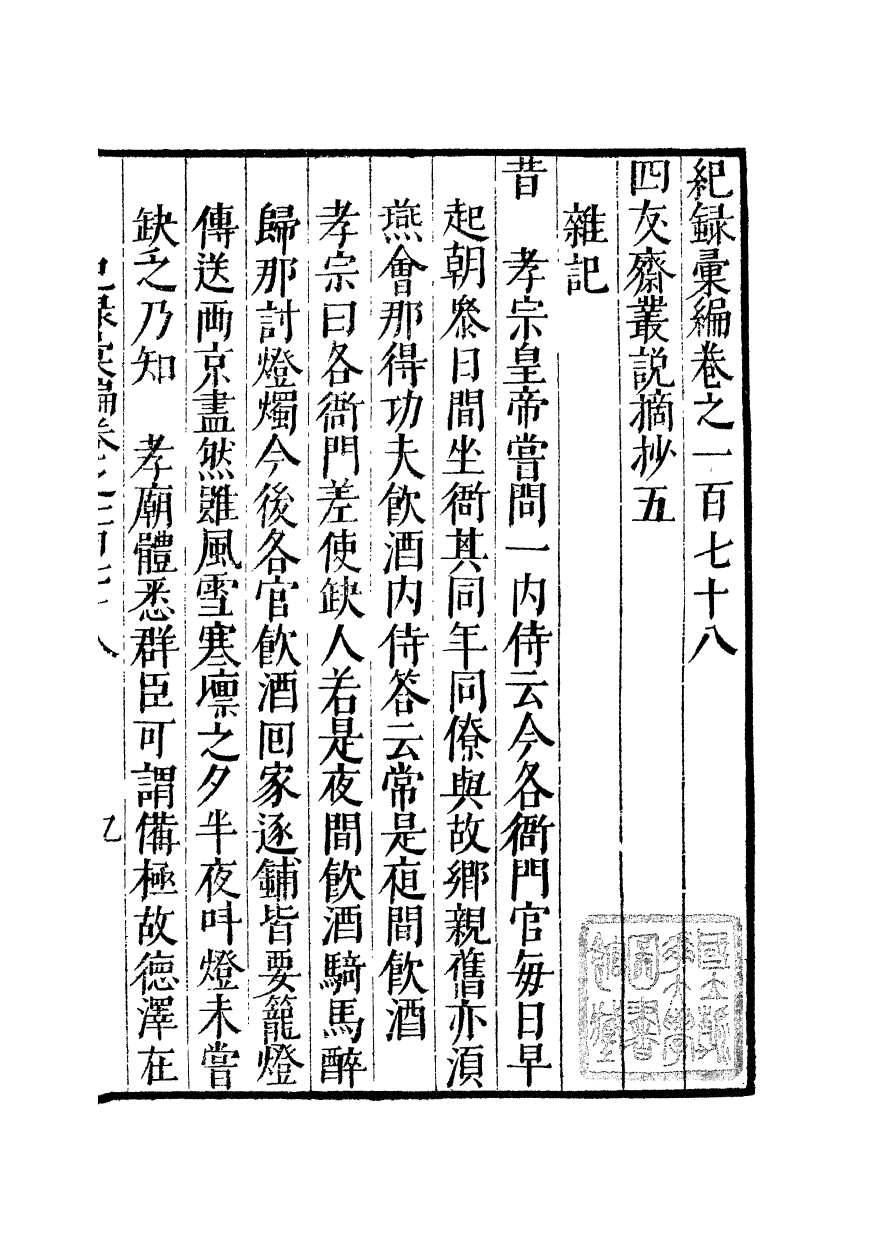 紀録彙編卷之一百七十八
四友齋叢説摘抄五
雜記
昔　孝宗皇帝嘗問一内侍云今各衙門官每日早
起朝叅日間坐衙其同年同僚與故鄉親舊亦湏
燕會那得功夫飲酒内侍答云常是夜間飲酒
孝宗曰各衙門差使缺人若是夜間飲酒騎馬醉
歸那討燈燭今後各官飲酒回家逐鋪皆要籠燈
傳送兩京盡然雖風雪寒凛之夕半夜呌燈未嘗
缺乏乃知　孝廟體悉群臣可謂備極故德澤在